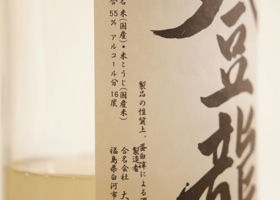 登龍
製品の性質上、蛋白滓による
製造者
合名会社 大
福島県白河市
名 米(国産)・米こうじ(国産米)
合 55% アルコール分 16度